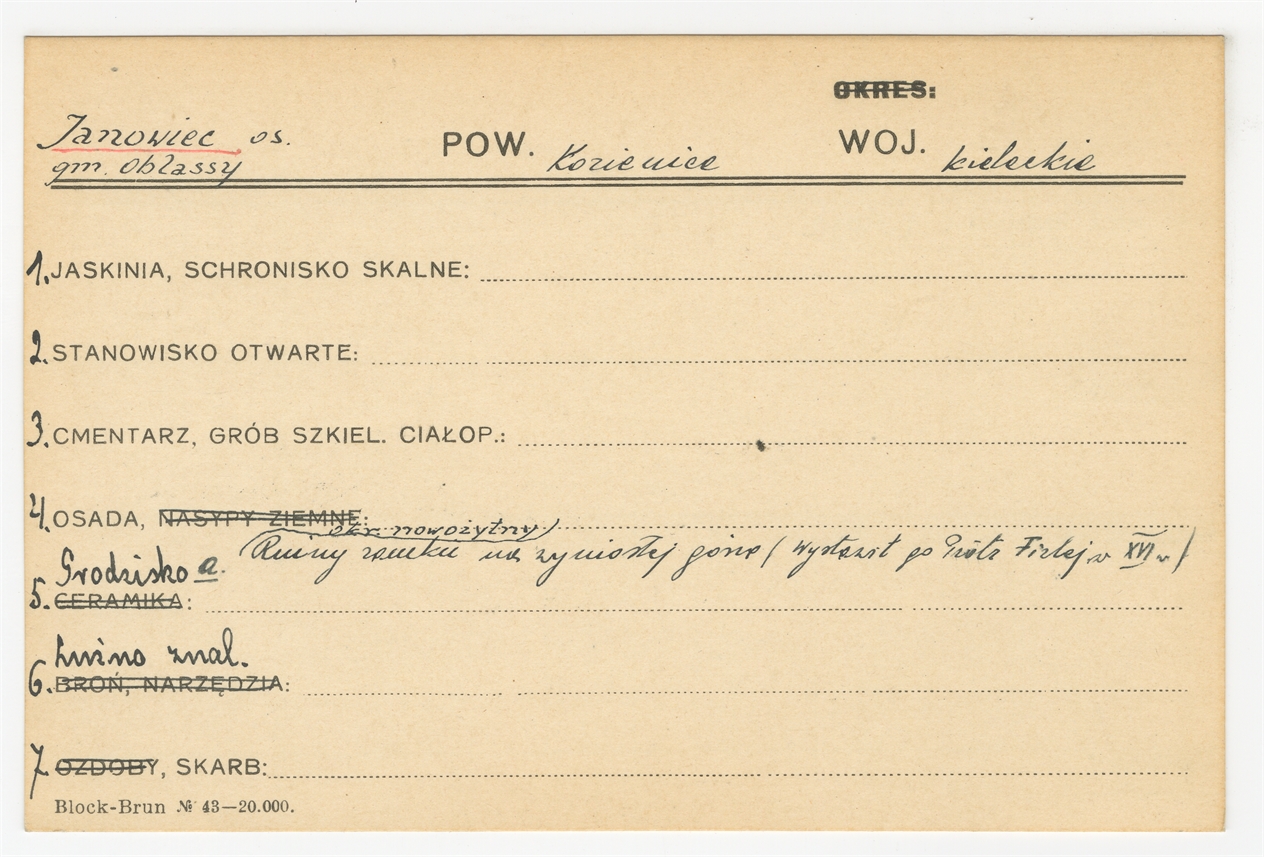 OKRES:
Janowiec os. POW. Kozienice WOJ. kieleckie
gm. Oblassy
1. JASKINIA, SCHRONISKO SKALNE:
2. STANOWISKO OTWARTE:
3. CMENTARZ, GRÓB SZKIEL. CIAŁOP.:
4. OSADA, NASYPY ZIEMNE:
okr. nowożytny)
Grodzisko a. (Ruiny zamku na wyniosłej górze (wystawił go Piotr Firlej w XVI w)
5. CERAMIKA:
Luźno znal.
6. BROŃ, NARZĘDZIA:
7 OZDOBY, SKARB:
Block-Brun № 43—20.000.